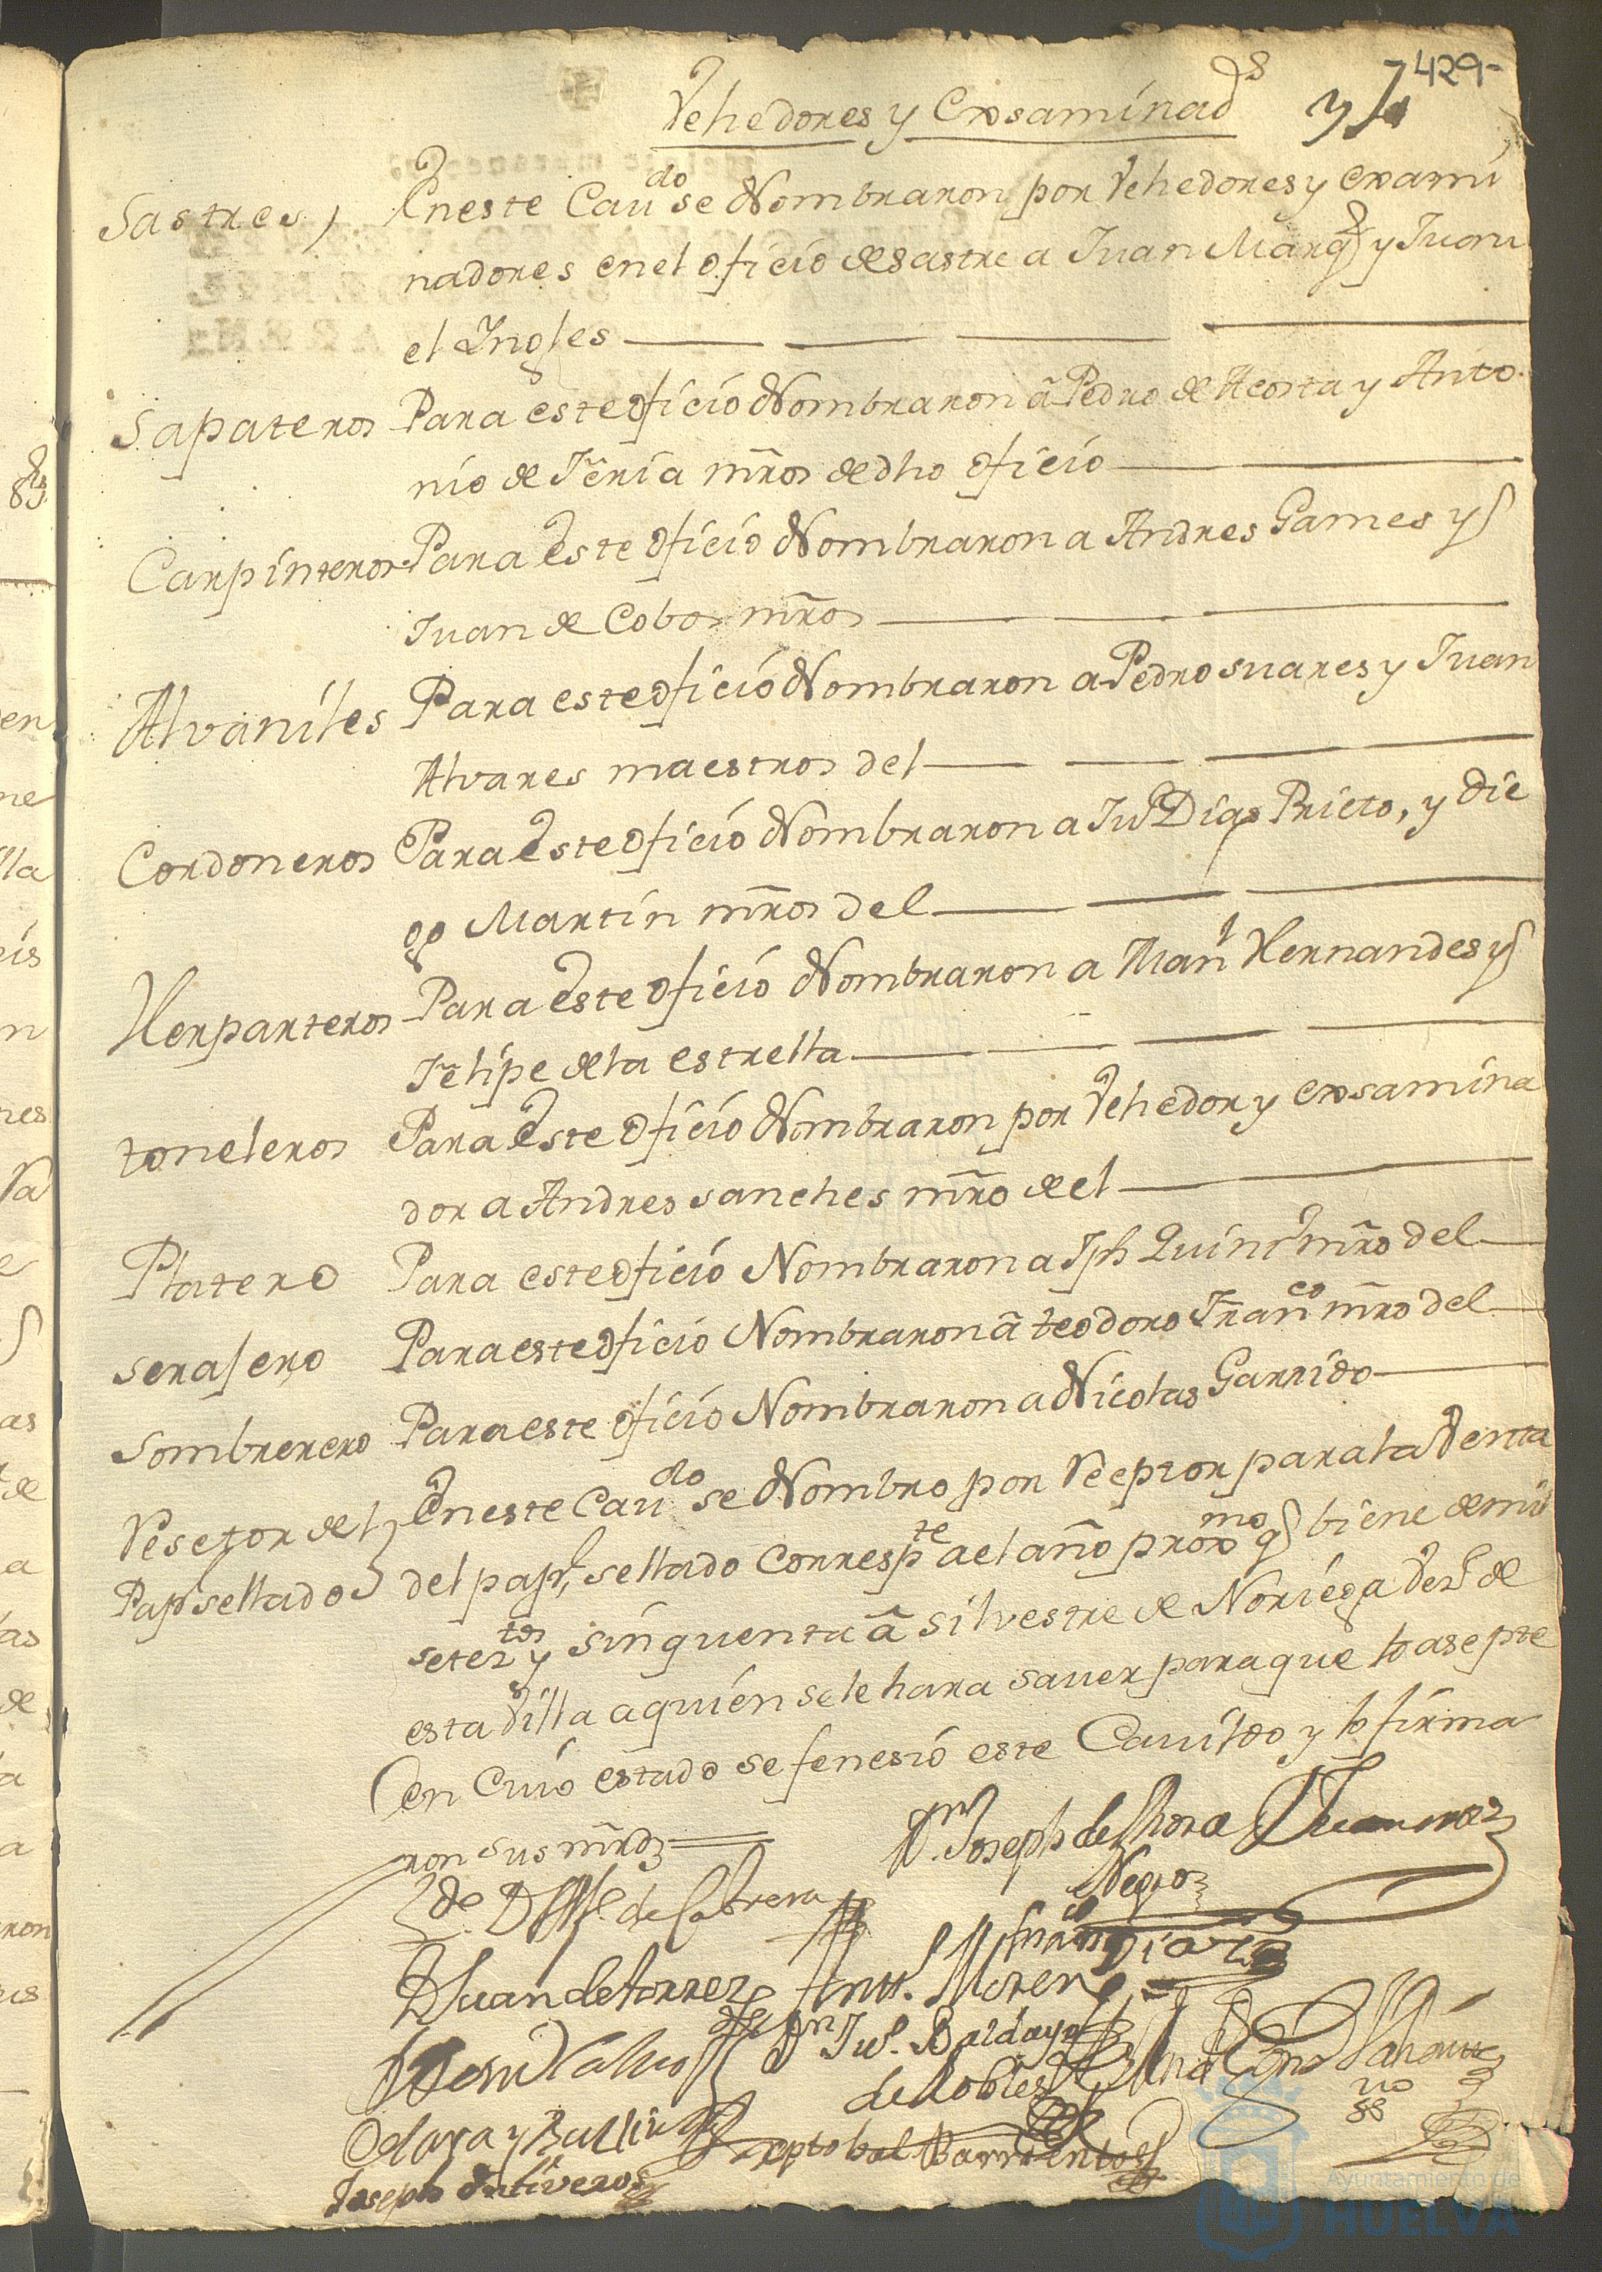 429-
Vehedores y Exsaminad.s
Sastres, En este Cau.do se Nombraron por Vehedores y exami
nadores en el oficio de sastre a Juan Marq.z y Juan
el Ingles
Sapateros Para este oficio Nombraron â Pedro de Acosta y Anto
nio de Feria mr̃os de dho oficio
Carpinteros Para Este oficio Nombraron a Andres Games y
Juan de Cobos mr̃os
Alvaniles Para este oficio Nombraron a Pedro suares y Juan
Alvares maestros del
Cordoneros Para Este oficio Nombraron a Ju.o Dias Prieto, y Die
go Martin mr̃os del
Herparteros Para Este oficio Nombraron a Man.l Hernandes y
Felipe de la estrella
toneleros Para Este oficio Nombraron por Vehedor y exsamina
dor a Andres sanches mr̃o de el
Platero Para este oficio Nombraron a Jph mr̃o del
serajero Para este oficio Nombraron â teodoro Fran.co mr̃o del
Sombrerero Para este oficio Nombraron a Nicolas Garrido
Resetor del En este Cau.do se Nombro por para la Venta
Pap.l sellado del pap.l sellado corresp.te a el año prox.mo q biene de mil
setez.tos y sinquenta â silvestre de Noriega de
esta Villa a quien se le hara saver para que lo asepte
en Cuio estado se fenesio este Cavildo y lo firma
ron sus mr̃dz
D.n Joseph de Mora Juan
Negro
de Cabrera
fran.co Diaz
D Juan de torrez Ant.o Moreno
D.n Ju.o Baldayo
de Robles
Olaya y
xptobal Barrientos
Joseph Ontiveros
Ayuntamiento de
HUELVA